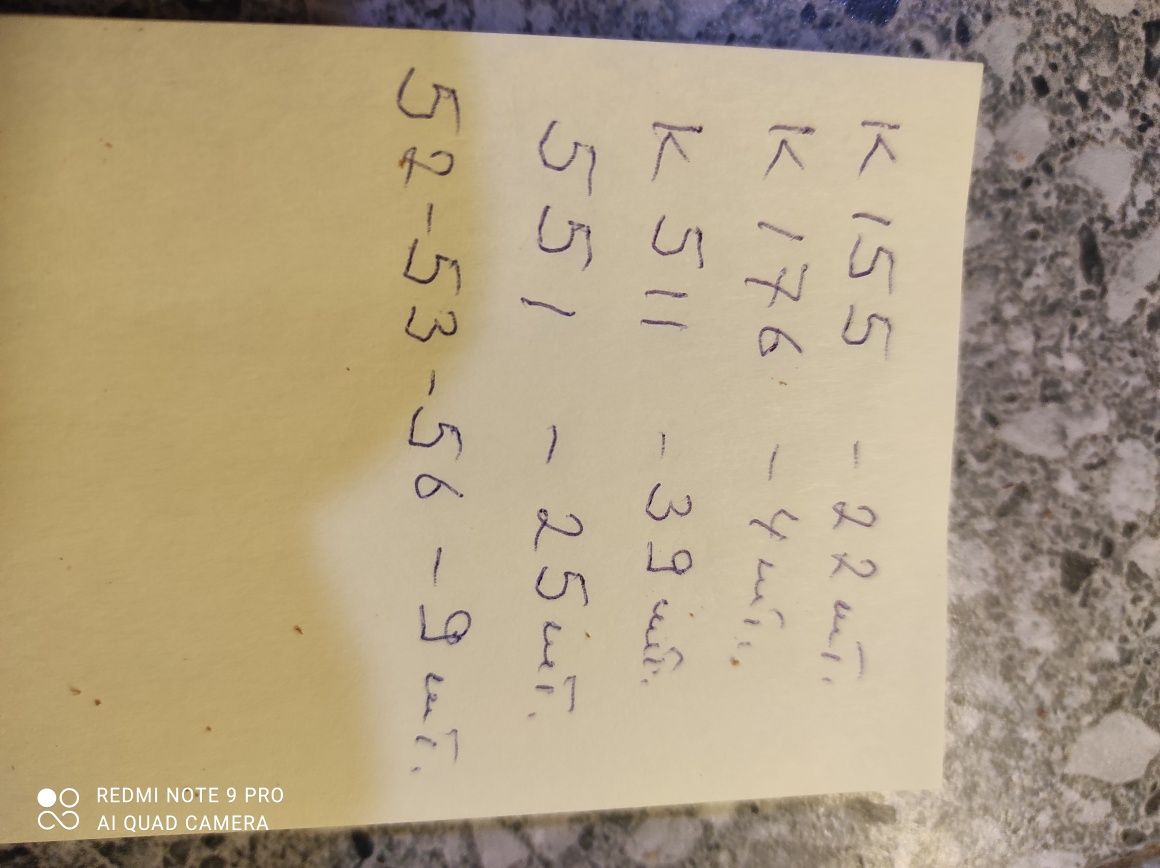 К 155 - 22шт.
К 176 - 4шт.
К 511 - 39шт.
551 - 25шт.
52-53-56 - 9шт.
REDMI NOTE 9 PRO
AI QUAD CAMERA